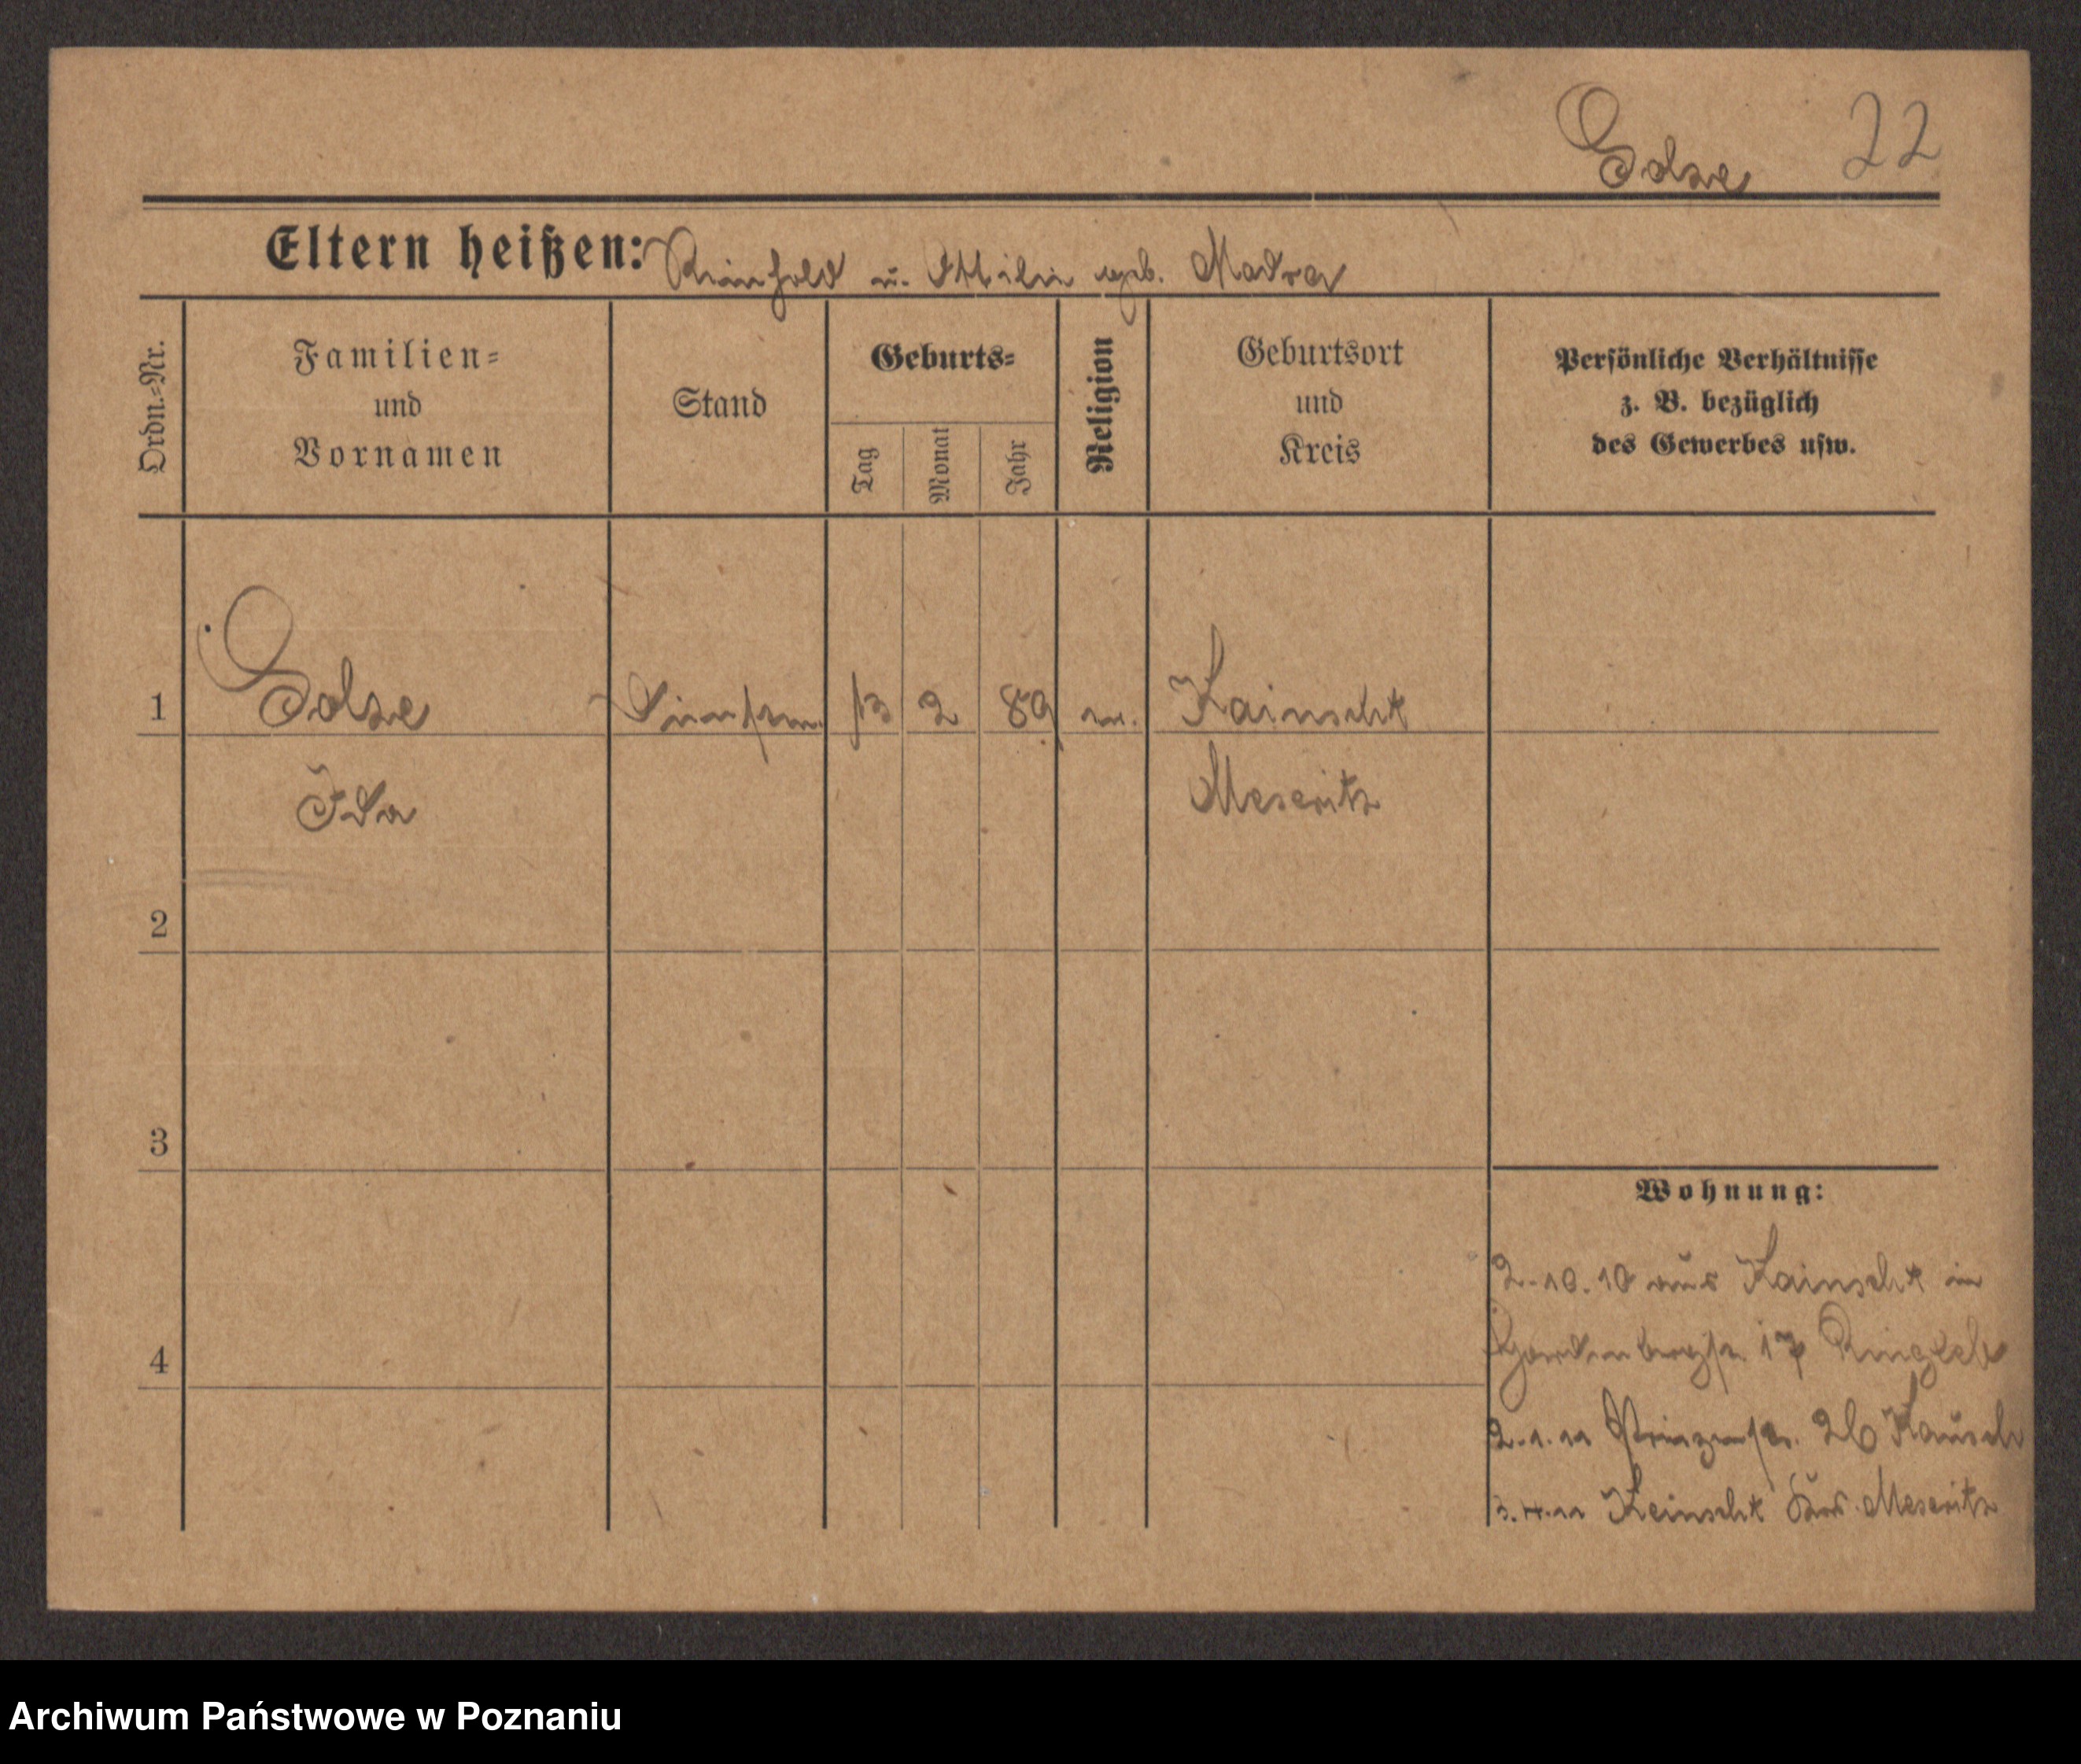 Golze 22
Eltern heißen: Reinhold u. Ottilie geb. Madra
Ordn.-Nr.
Familien-
und
Vornamen
Stand
Geburts-
Tag
Monat
Jahr
Religion
Geburtsort
und
Kreis
Persönliche Verhältnisse
z. B. bezüglich
des Gewerbes usw.
1 Golze 13 2 89 ev. Kainscht
Ida Meseritz
2
3
4
Wohnung:
2.10.10 aus Kainscht in
17
2.1.11 Prinzenstr. 26 Kausch
3.4.11 Keinscht Krs. Meseritz
Archiwum Państwowe w Poznaniu